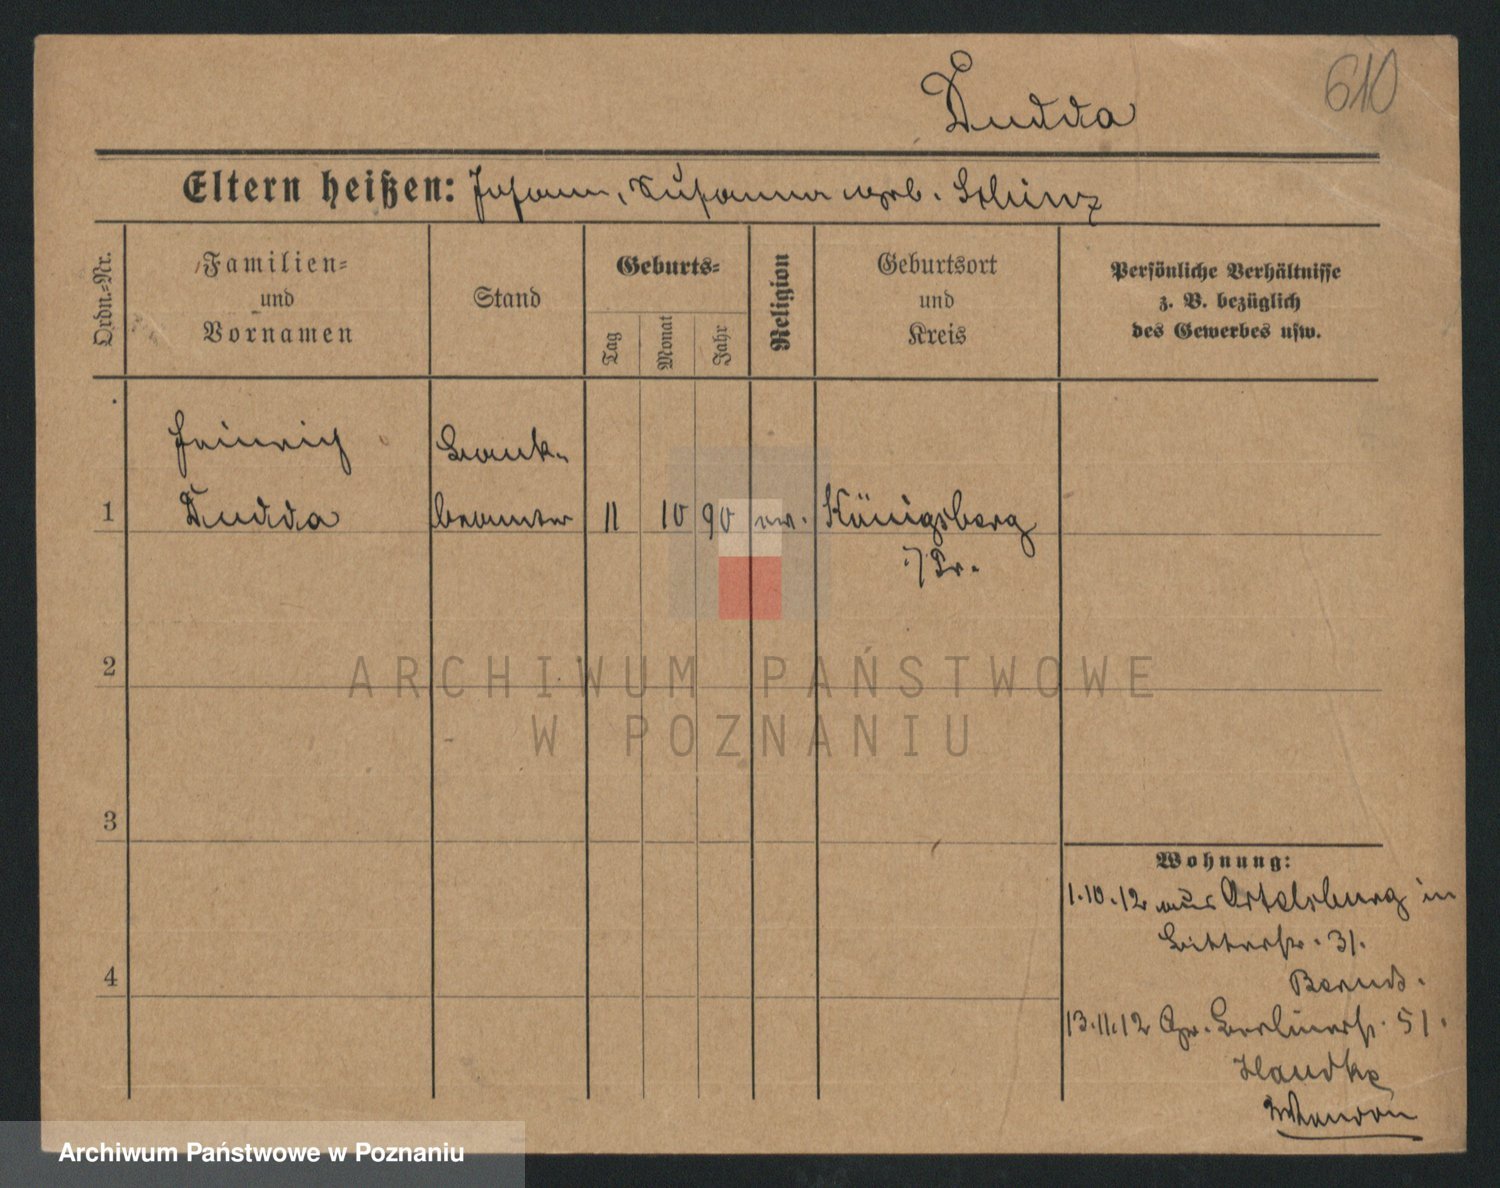 610
Dudda
Eltern heißen: Johann, Susanna geb.
Ordn.-Nr.
Familien-
und
Vornamen
Stand
Geburts-
Tag
Monat
Jahr
Religion
Geburtsort
und
Kreis
Persönliche Verhältnisse
z. B. bezüglich
des Gewerbes usw.
Heinrich Bank-
1 Dudda beamter 11 10 90 ev. Königsberg
i/Pr.
2
3
4
Wohnung:
1.10.12 aus Ortelsburg in
Ritterstr. 31.
Berndt.
13.11.12 Gr. Berlinerstr. 51.
Handke
ARCHIWUM PAŃSTWOWE
W POZNANIU
Archiwum Państwowe w Poznaniu